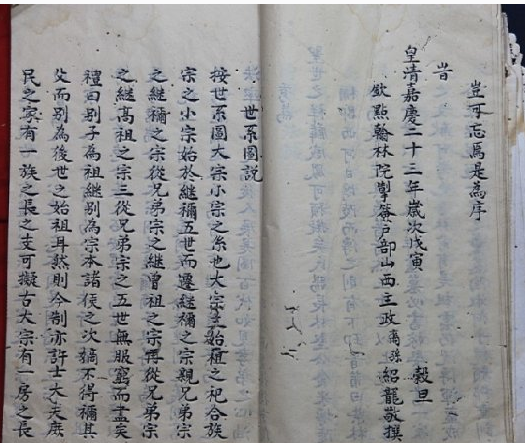 豈可忘焉是為序
旹
皇清嘉慶二十三年歲次戊寅 穀旦
欽點翰林院掌簿戶部山西主政裔孫紹龍敬撰
世系圖說
按世系圖大宗小宗之系也大宗主始祖之祀合族
宗之小宗始於繼禰五世而遷繼禰之宗親兄弟宗
之繼禰之宗從兄弟宗之繼曾祖之宗再從兄弟宗
之繼高祖之宗三從兄弟宗之五世無服窮而盂矣
禮曰別子為祖繼別為宗本諸侯之次嫡不得禰其
父而別為後世之始祖耳然則今制亦許士大夫庶
民之家有一族之長之支可擬古大宗有一房之長